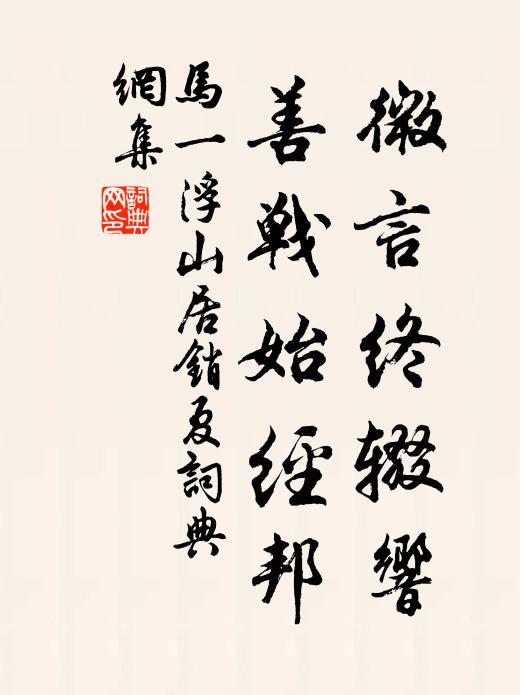 微言终辍響
善戦始經邦
馬一浮山居銷夏詞典
網集
詞典
网印